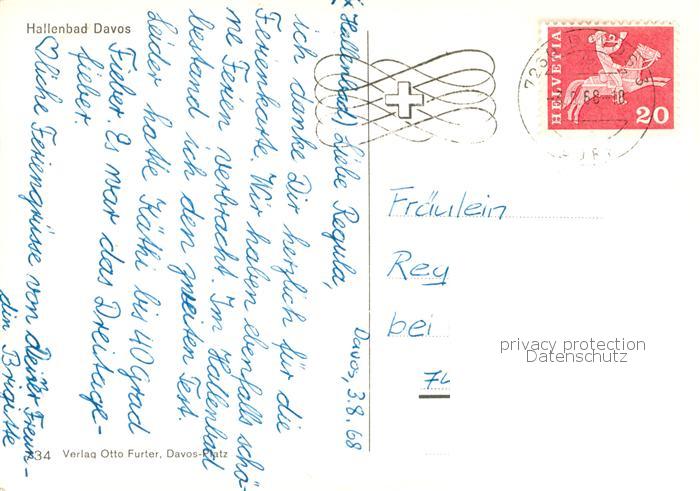 Hallenbad Davos
Davos, 3.8.68
(x Hallenbad) Liebe Regula,
ich danke Dir herzlich für die
Ferienkarte. Wir haben ebenfalls schö-
ne Ferien verbracht. Im Hallenbad
bestand ich den zweiten Test.
Leider hatte Käthi bis 40 Grad
Fieber. Es war das Dreitage-
fieber.
liche Feriengrüsse von Deiner Freun-
din Brigitte
HELVETIA
20
Fräulein
Reg
bei
74
privacy protection
Datenschutz
334 Verlag Otto Furter, Davos-Platz